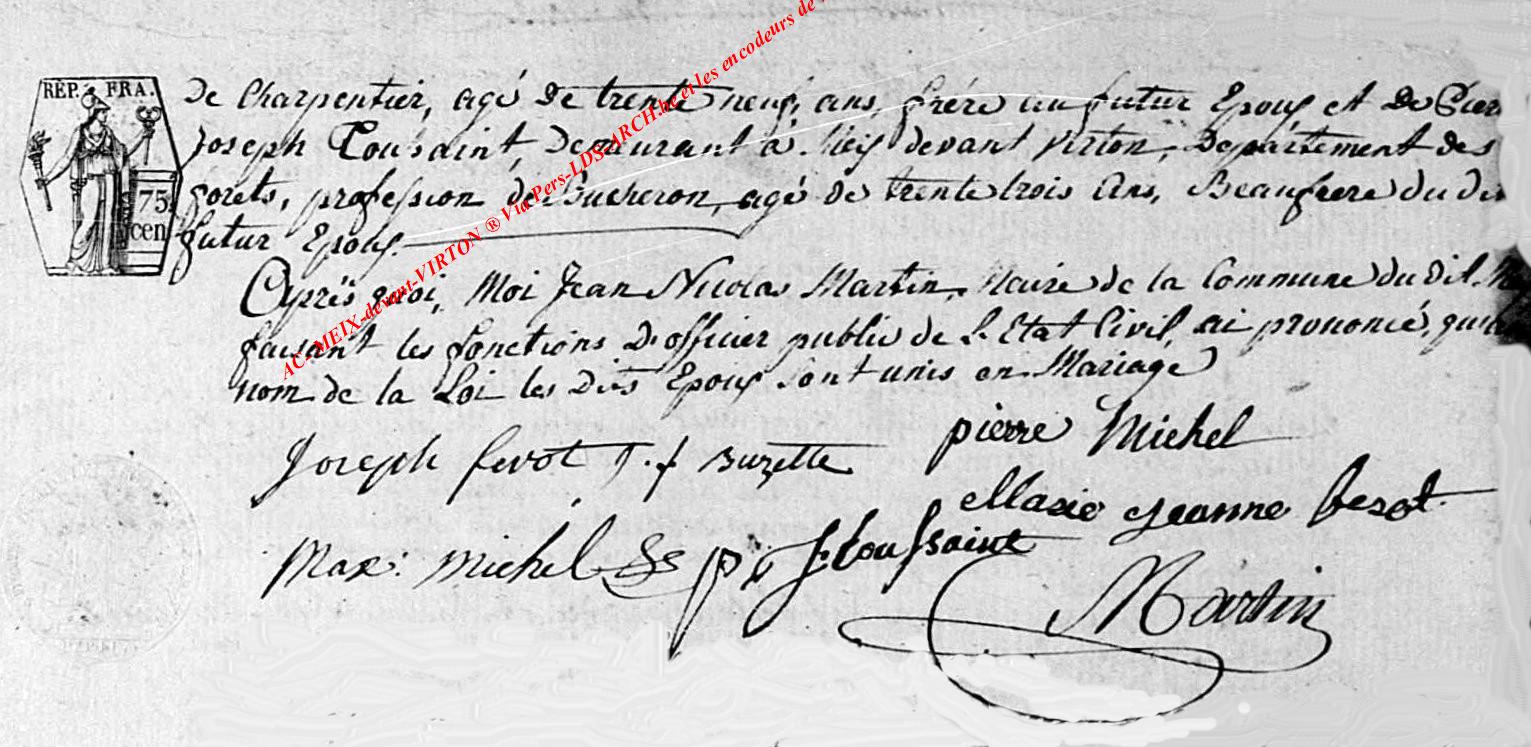 AC-MEIX-devant-VIRTON ® Via Pers-LDS-ARCH.be et les encodeurs de
REP. FRA.
75.
cen
De Charpentier, agé De trente neuf, ans, frére au futur Epoux et De Pier
Joseph Tousaint, Demeurant à Meix devant Virton, Département des
forets, profession de Bucheron, agé de trente trois Ans, Beaufrere du dit
futur Epoux.
Après quoi, Moi Jean Nicolas Martin, Maire de la Commune du dit
faisant les fonctions D'officier public de L'Etat Civil, ai prononcé, qu'au
nom de la Loi les Dits Epoux sont unis en Mariage
pierre Michel
Joseph fevot J. f Buzette
Marie jeanne fevot
Max: Michel p j toussaint
Martin